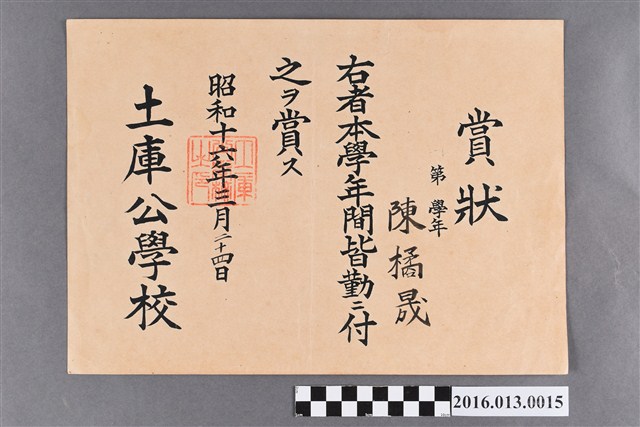 賞狀
第 學年
陳橘晟
右者本學年間皆勤ニ付
之ヲ賞ス
昭和十六年三月二十四日
土庫公學校
2016.013.0015